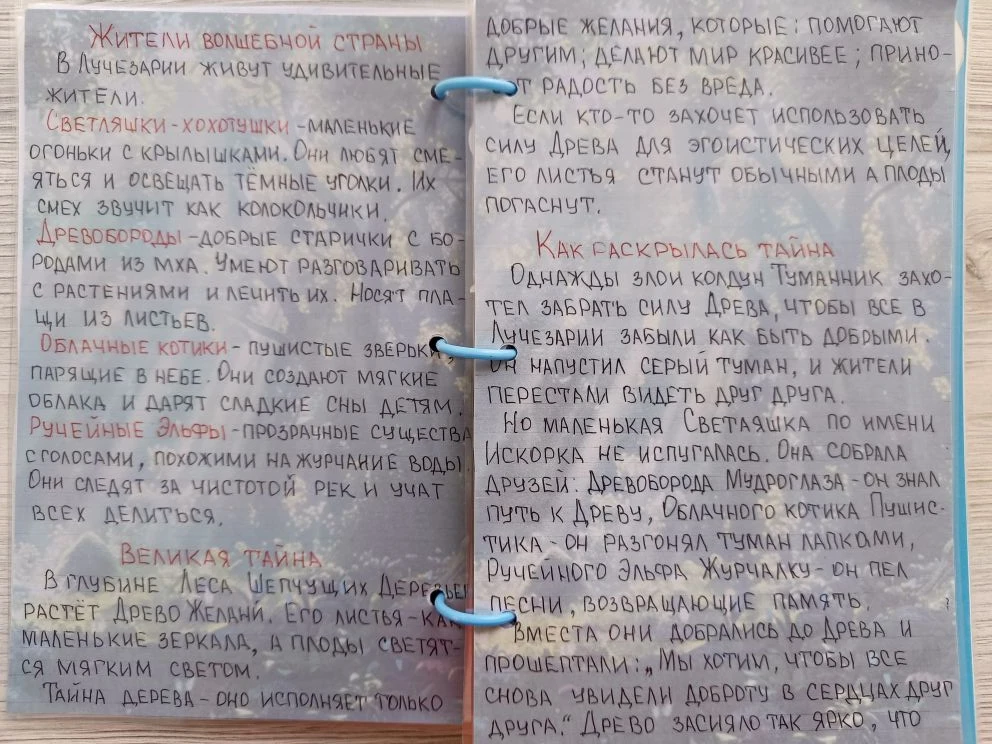 Жители волшебной страны
В Лучезарии живут удивительные
жители.
Светляшки-хохотушки -маленькие
огоньки с крылышками. Они любят сме-
яться и освещать тёмные уголки. Их
смех звучит как колокольчики.
Древобороды -добрые старички с бо-
родами из мха. Умеют разговаривать
с растениями и лечить их. Носят пла-
щи из листьев.
Облачные котики - пушистые зверьки,
парящие в небе. Они создают мягкие
облака и дарят сладкие сны детям.
Ручейные Эльфы -прозрачные существа
с голосами, похожими на журчание воды
Они следят за чистотой рек и учат
всех делиться.
Великая тайна
В глубине Леса Шепчущих Деревьев
растёт Древо Желаний. Его листья-как
маленькие зеркала, а плоды светят-
ся мягким светом.
Тайна дерева - оно исполняет только
добрые желания, которые: помогают
другим; делают мир красивее; прино-
т радость без вреда.
Если кто-то захочет использовать
силу Древа для эгоистических целей,
его листья станут обычными а плоды
погаснут.
Как раскрылась тайна
Однажды злой колдун Туманник захо-
тел забрать силу Древа, чтобы все в
Лучезарии забыли как быть добрыми.
Он напустил серый туман, и жители
перестали видеть друг друга.
Но маленькая Светляшка по имени
Искорка не испугалась. Она собрала
друзей: Древоборода Мудроглаза - он знал
путь к Древу, Облачного котика Пушис-
тика - он разгонял туман лапками,
Ручейного Эльфа Журчалку - он пел
песни, возвращающие память.
Вместа они добрались до Древа и
прошептали: „Мы хотим, чтобы все
снова увидели доброту в сердцах друг
друга." Древо засияло так ярко, что